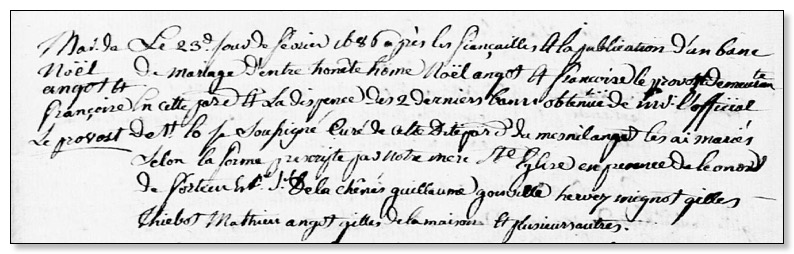 Mar. de Le 23e Jour de fevrier 1686 après les fiançailles et la publication d'un banc
Noël de mariage d'entre honête home Noël angot et françoise le provost demeurant
angot et
françoise en cette parse et La dispence des 2 derniers bancs obtenue de l'official
Le provost de je soussigné Curé de cette dite parse du mesnilangot les ai mariés
selon la forme prescripte par notre mere Ste Eglise en presence de Leonord
de de la chénés guillaume gouville hervey mignot gilles
Thiebot Mathieu angot gilles de la maison et plusieurs autres.